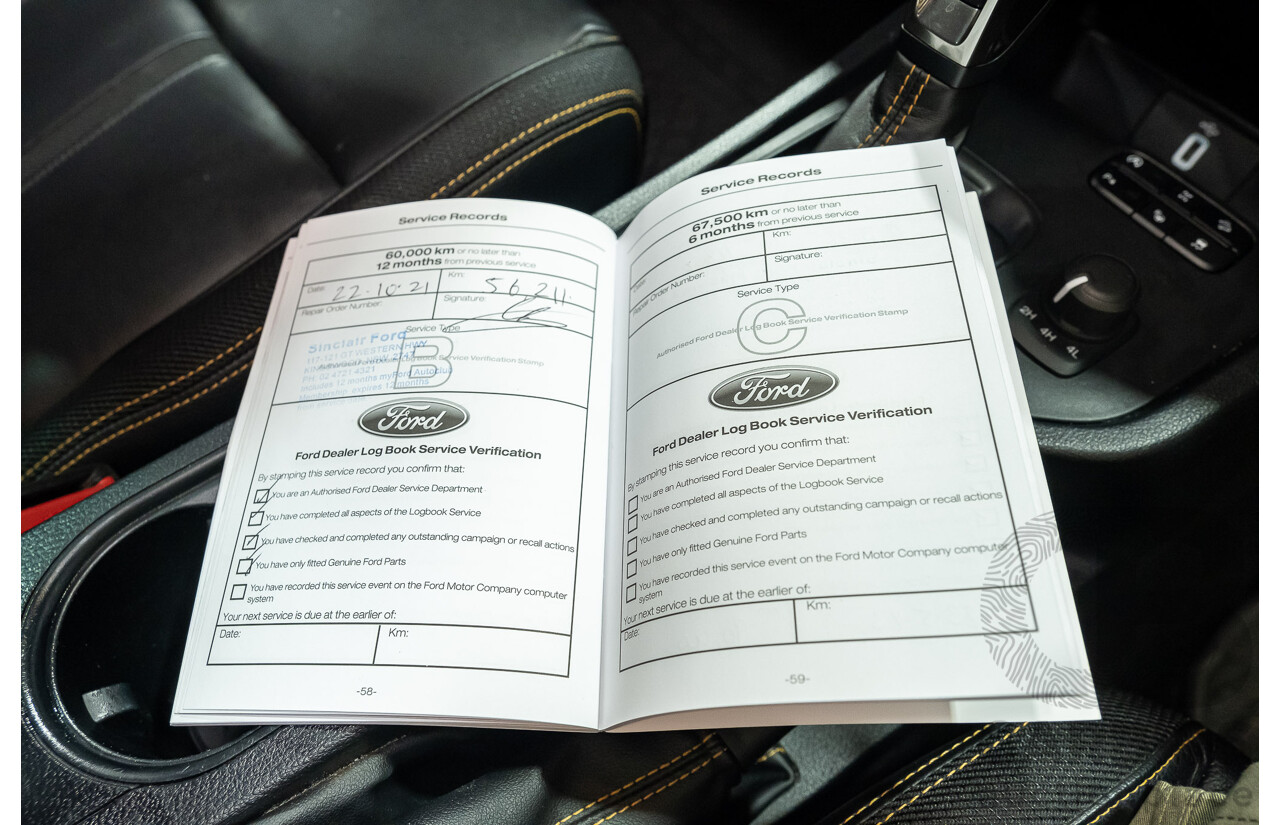 Service Records
60,000 km or no later than
12 months from previous service
Date: 22·10·21
Km: 56,211.
Repair Order Number:
Signature:
Service Type
B
Authorised Ford Dealer Log Book Service Verification Stamp
Sinclair Ford
117-121 GT WESTERN HWY
PH: 02 4721 4321
Includes 12 months myFord Autoclub
Membership, expires 12 months
Ford
Ford Dealer Log Book Service Verification
By stamping this service record you confirm that:
You are an Authorised Ford Dealer Service Department
You have completed all aspects of the Logbook Service
You have checked and completed any outstanding campaign or recall actions
You have only fitted Genuine Ford Parts
You have recorded this service event on the Ford Motor Company computer
system
Your next service is due at the earlier of:
Date:
Km:
-58-
Service Records
67,500 km or no later than
6 months from previous service
Date:
Km:
Repair Order Number:
Signature:
Service Type
C
Authorised Ford Dealer Log Book Service Verification Stamp
Ford
Ford Dealer Log Book Service Verification
By stamping this service record you confirm that:
You are an Authorised Ford Dealer Service Department
You have completed all aspects of the Logbook Service
You have checked and completed any outstanding campaign or recall actions
You have only fitted Genuine Ford Parts
You have recorded this service event on the Ford Motor Company computer
system
Your next service is due at the earlier of:
Date:
Km:
-59-
2H
4H
4L